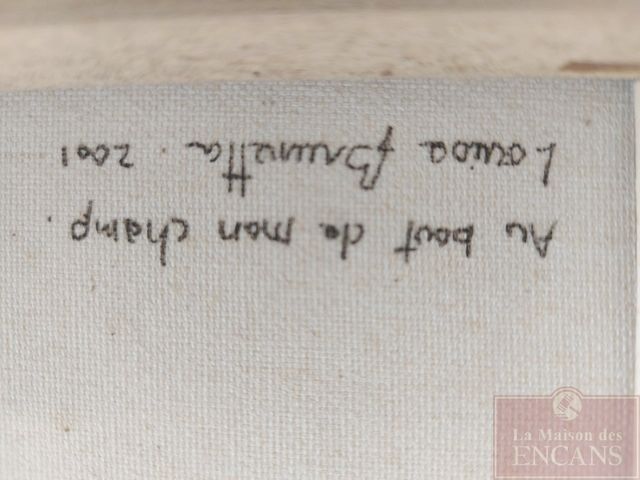 Au bout de mon champ.
Louisa Brunetta. 2001
La Maison des
ENCANS